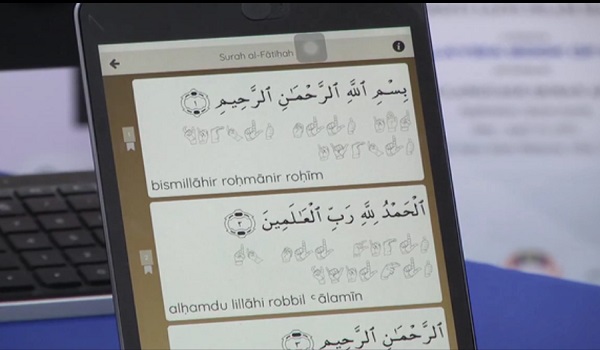 Surah al-Fātihah
بِسْمِ ٱللَّهِ ٱلرَّحْمَـٰنِ ٱلرَّحِيمِ ١
bismillāhir roḥmānir roḥīm
ٱلْحَمْدُ لِلَّهِ رَبِّ ٱلْعَـٰلَمِينَ ٢
alḥamdu lillāhi robbil ʿālamīn
ٱلرَّحْمَـٰنِ ٱلرَّحِيمِ ٣